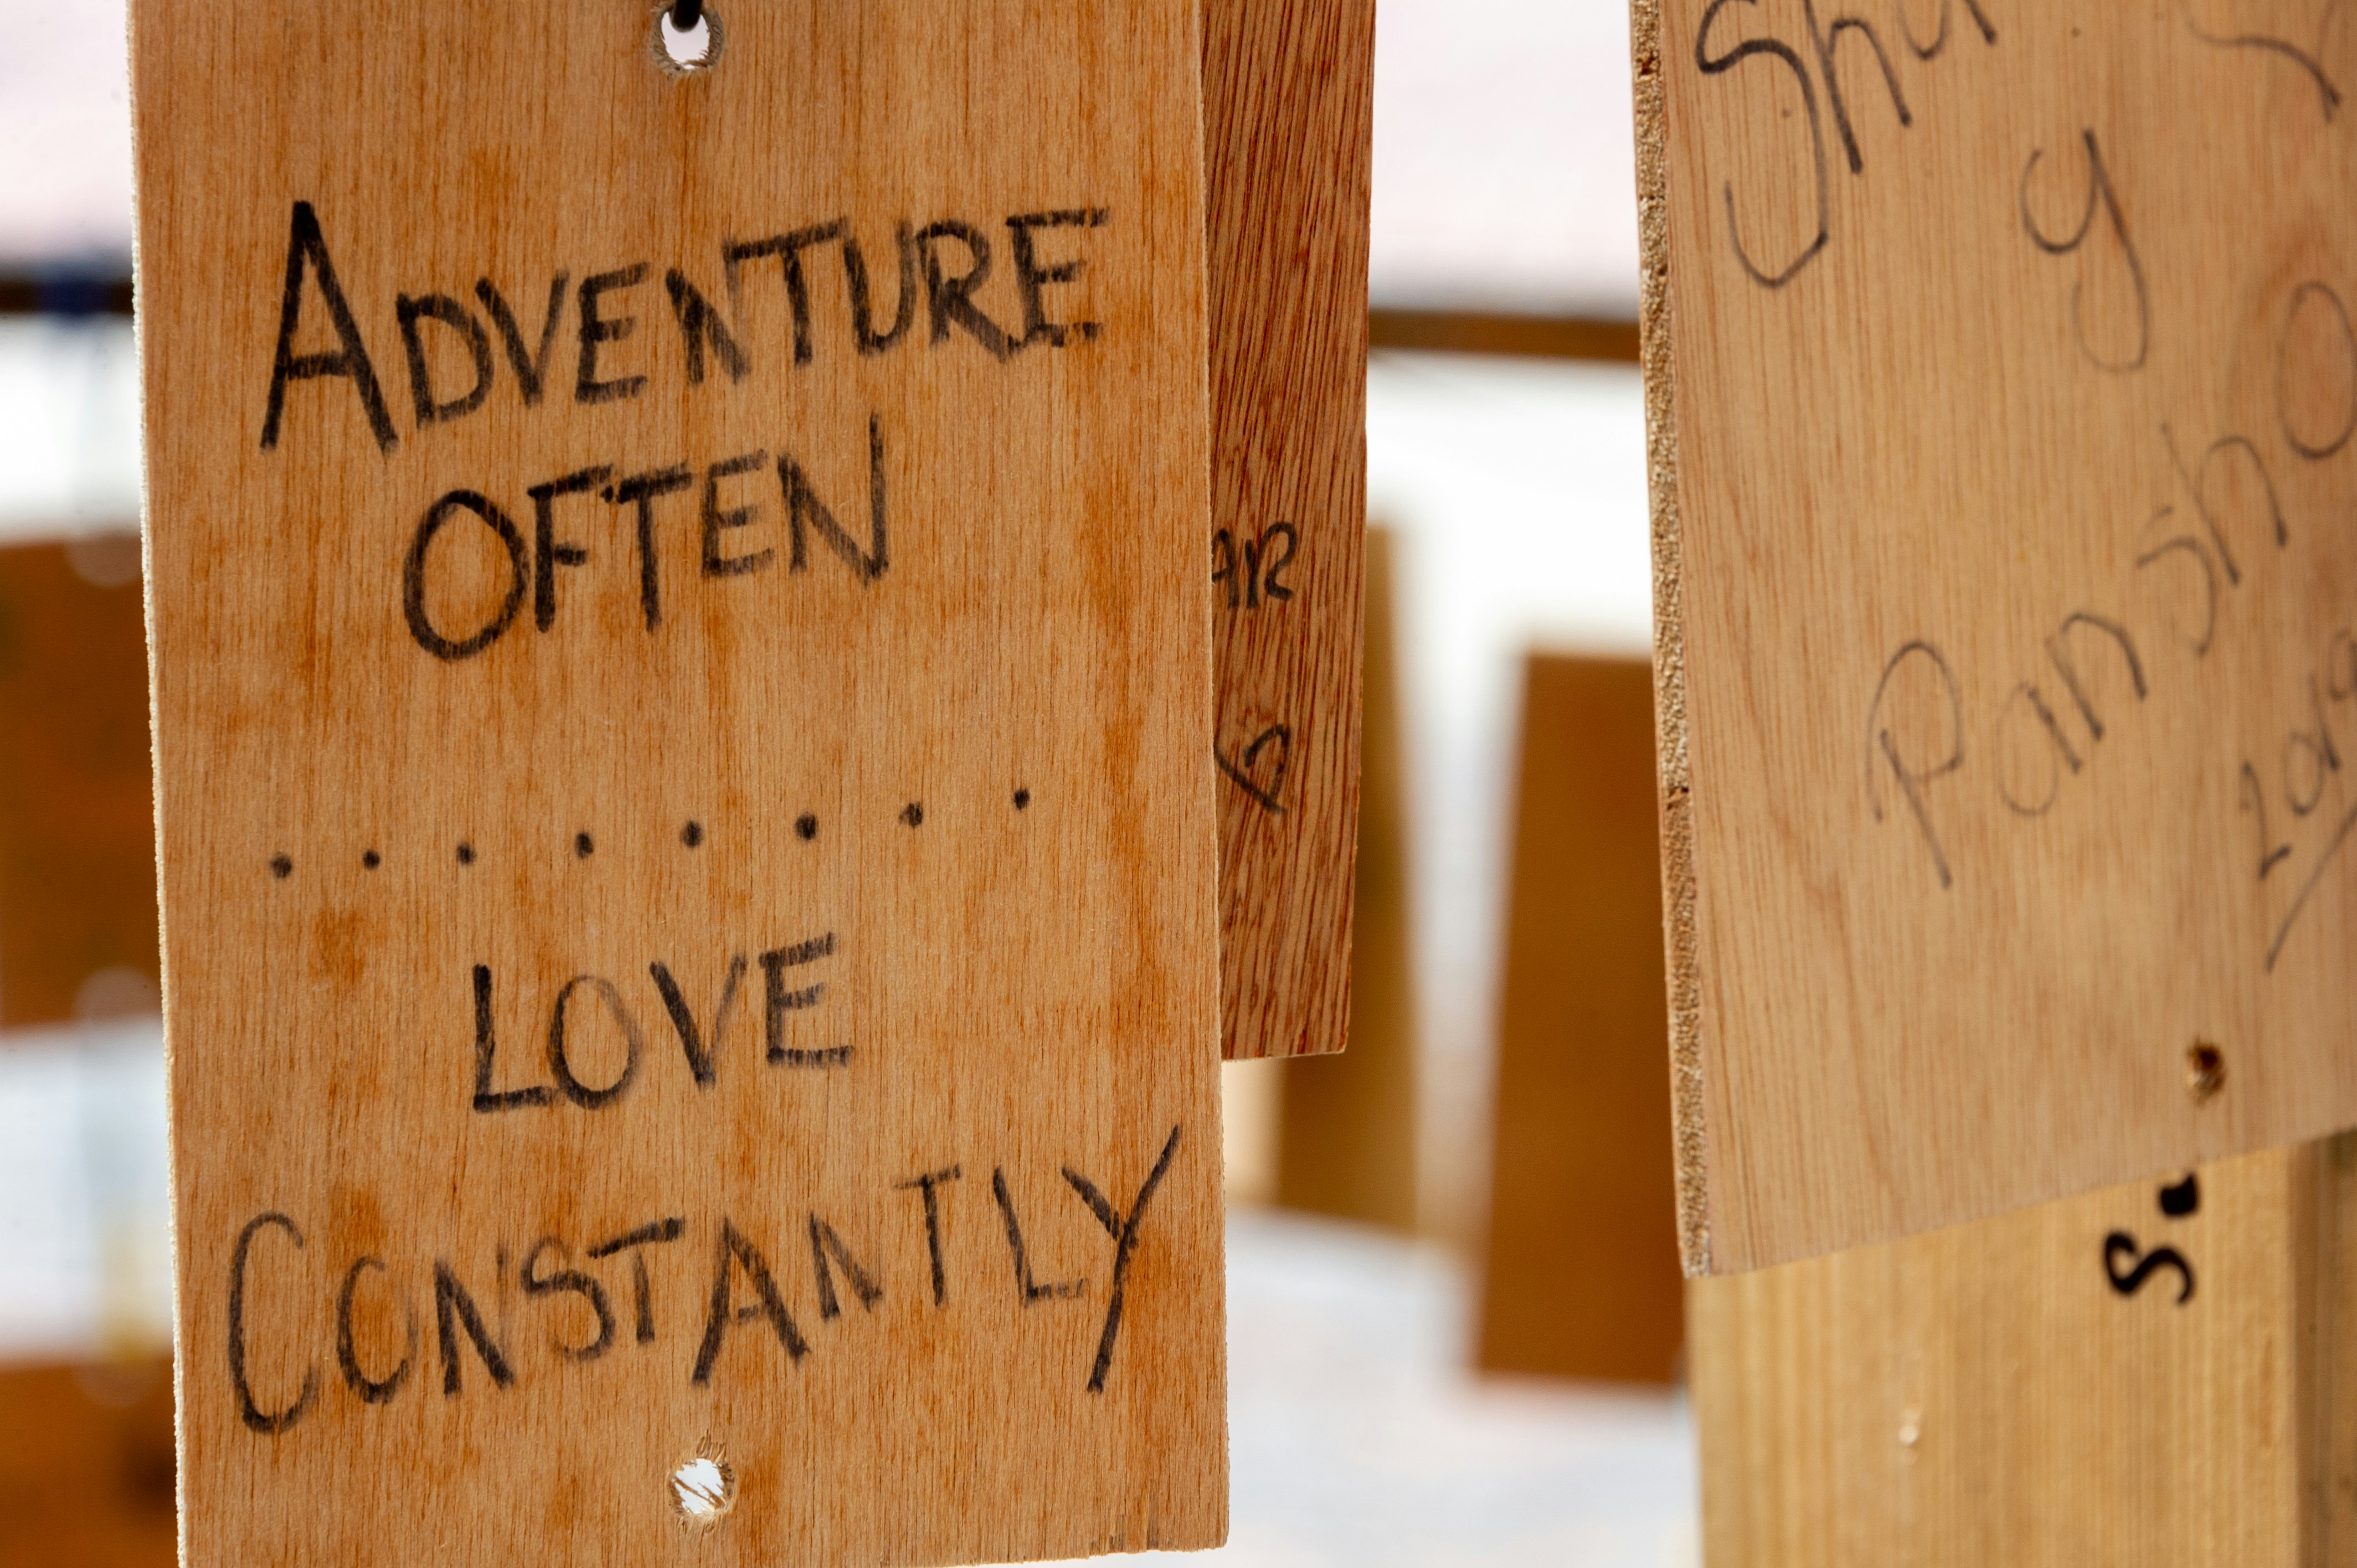 ADVENTURE
OFTEN
. . . . . . . .
LOVE
CONSTANTLY
AR
y
Pansho
2019